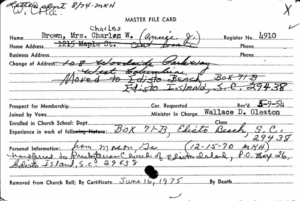 Letter sent 8/74 - MKN
W. Cola.
MASTER FILE CARD
Charles
Name Brown, Mrs. Charles W. (Annie J.) Register No. 4910
Home Address 1215 Maple St.
Business Address Phone
Change of Address 108 Woodside Parkway
West Columbia
Moved to Edisto Beach BOX 71-B
Edisto Island, S.C. 29438
Prospect for Membership Cer. Requested Rec'd 5-9-54
Joined by Vows Minister in Charge Wallace D. Gleaton
Enrolled in Church School: Dept. Class
Experience in work of BOX 71-B, Edisto Beach, S.C. 29438
Personal Information: from Macon, Ga (12-15-70 MKN)
transferred to Presbyterian Church of Edisto Island, P.O. Box 26,
Edisto Island, S.C. 29438
Removed from Church Roll: By Certificate June 16, 1975 By Death